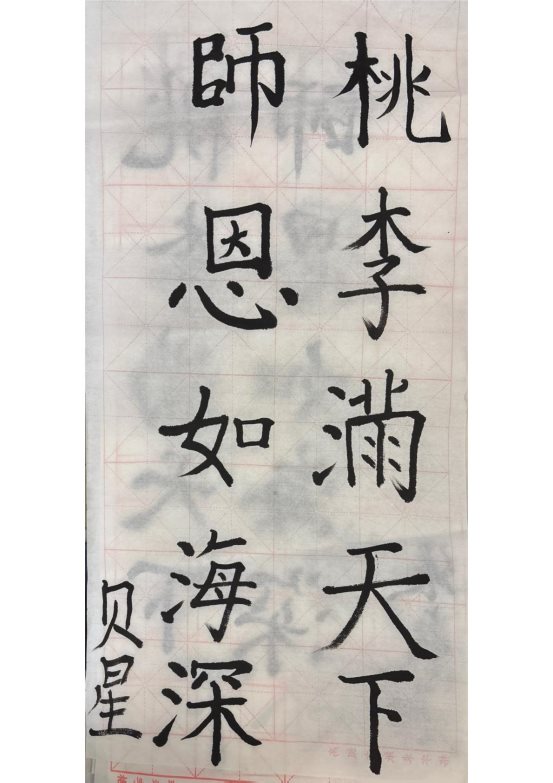 桃李滿天下
師恩如海深
贝星